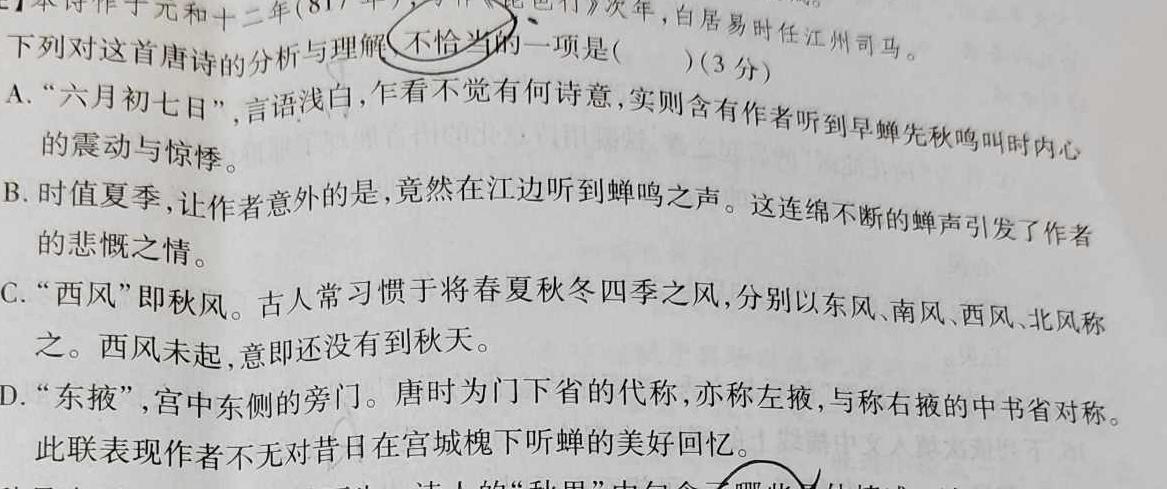 本诗作于元和十二年(817年),
》次年,白居易时任江州司马。
下列对这首唐诗的分析与理解,不恰当的一项是(　　)(3分)
A.“六月初七日”,言语浅白,乍看不觉有何诗意,实则含有作者听到早蝉先秋鸣叫时内心
的震动与惊悸。
B.时值夏季,让作者意外的是,竟然在江边听到蝉鸣之声。这连绵不断的蝉声引发了作者
的悲慨之情。
C.“西风”即秋风。古人常习惯于将春夏秋冬四季之风,分别以东风、南风、西风、北风称
之。西风未起,意即还没有到秋天。
D.“东掖”,宫中东侧的旁门。唐时为门下省的代称,亦称左掖,与称右掖的中书省对称。
此联表现作者不无对昔日在宫城槐下听蝉的美好回忆。